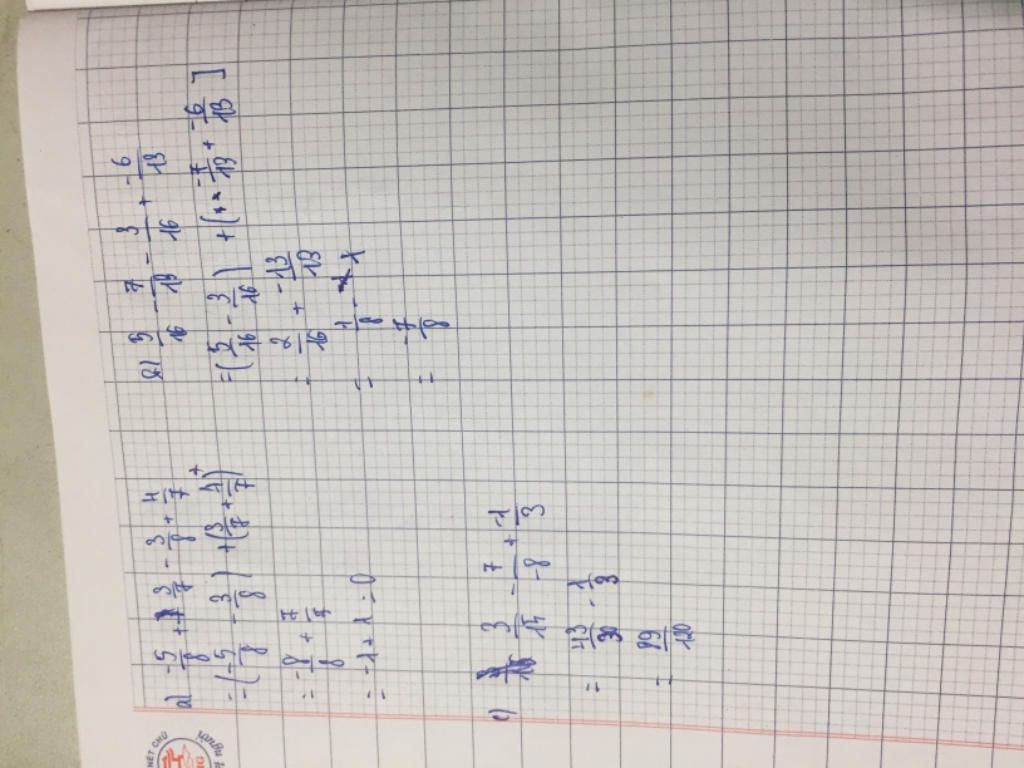 a) -5/8 + 3/7 - 3/8 + 4/7
= (-5/8 - 3/8) + (3/7 + 4/7)
= -8/8 + 7/7
= -1 + 1 = 0
b) 5/16 - 7/13 - 3/16 + -6/13
= (5/16 - 3/16) + ( -7/13 + -6/13 ]
= 2/16 + -13/13
= 1/8 - 1
= -7/8
c) 3/15 - 7/-8 + -1/3
= - 1/3
= 89/120
NÉT CHỮ